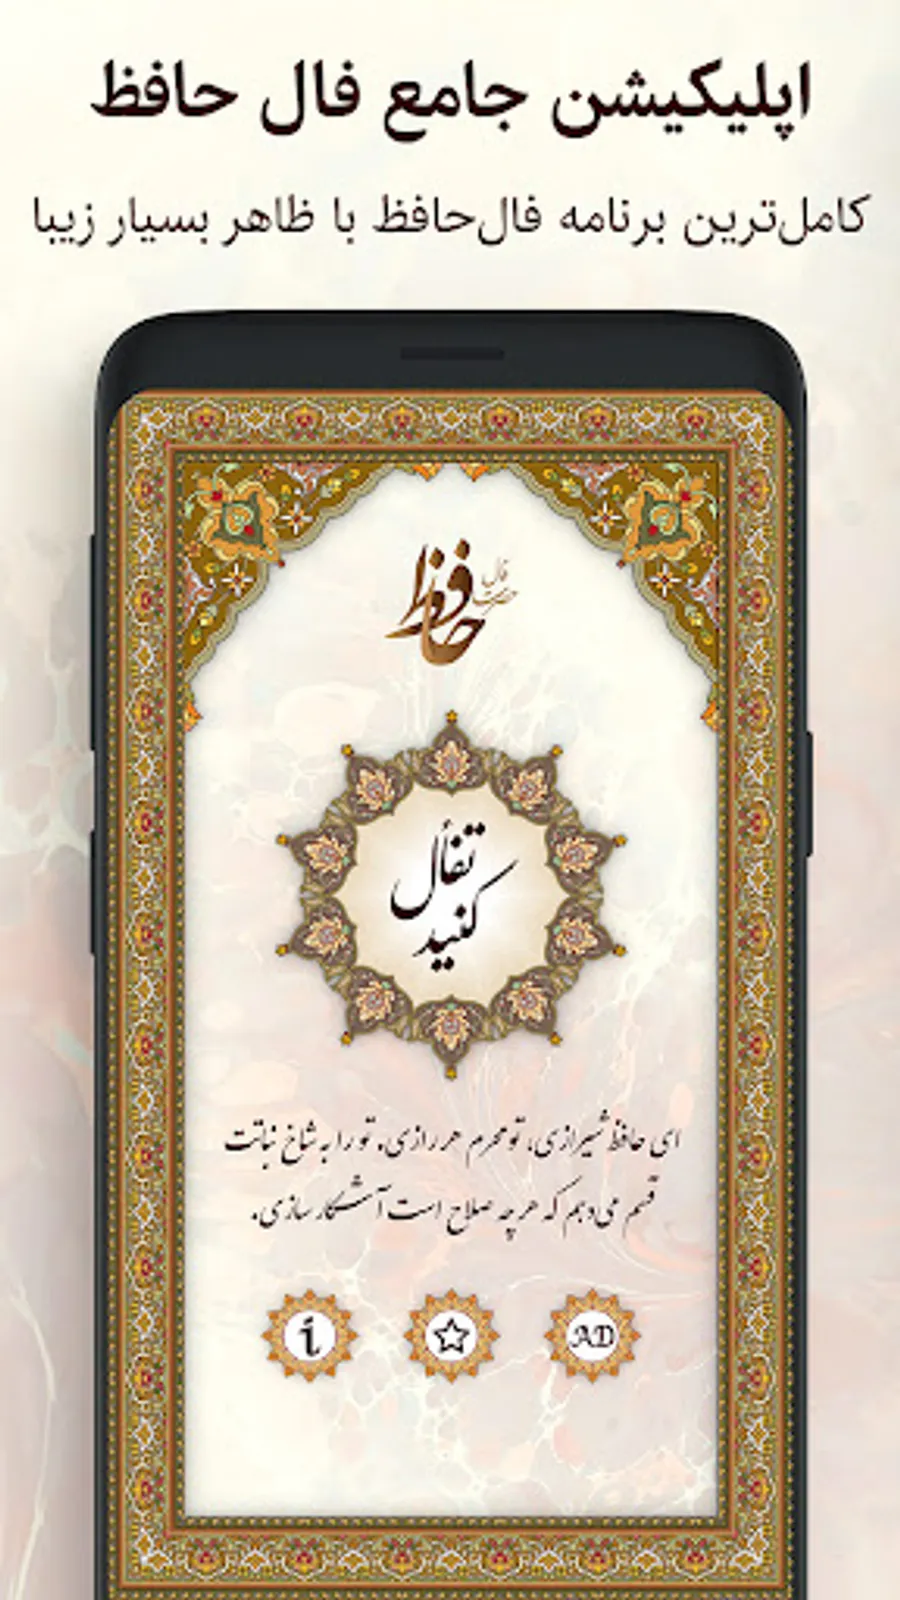 اپلیکیشن جامع فال حافظ
کامل‌ترین برنامه فال‌حافظ با ظاهر بسیار زیبا
فال
حضرت
حافظ
تفأل
کنید
ای حافظ شیرازی، تو محرم هر رازی، تو را به شاخ نباتت
قسم می‌دهم که هر چه صلاح است آشکار سازی.
i
AD